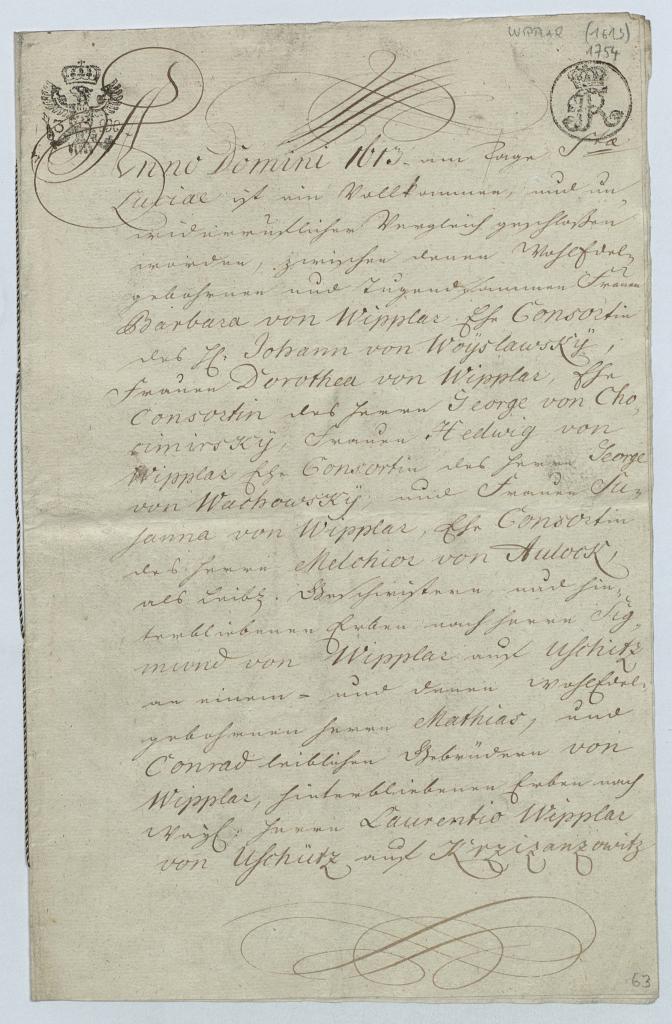 WIPPLAR (1613)
1754
FR
Anno Domini 1613. am Tage Stæ
Luciae ist ein Vollkommen, und un„
widerruflicher Vergleich geschloßen
worden, zwischen denen WohlEdel„
gebohrnen und Tugendsammen Frauen
Barbara von Wipplar Ehe Consortin
des H. Johann von Woÿslawskÿ,
Frauen Dorothea von Wipplar, Ehe
Consortin des Herrn George von Cho„
cimirskÿ, Frauen Hedwig von
Wipplar Ehe Consortin des Herrn George
von Wachowskÿ, und Frauen Su„
sanna von Wipplar, Ehe Consortin
des Herrn Melchior von Aulock,
als leibl. Geschwistern, und hin„
terbliebenen Erben nach Herrn Sig„
mund von Wipplar auf Uschitz
an einem – und denen WohlEdel„
gebohrnen Herrn Mathias, und
Conrad leiblichen Gebrüdern von
Wipplar, hinterbliebenen Erben nach
Herrn Laurentio Wipplar
von Uschütz auf Krzizanzowitz
63